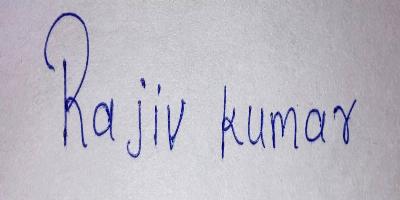 Rajiv kumar